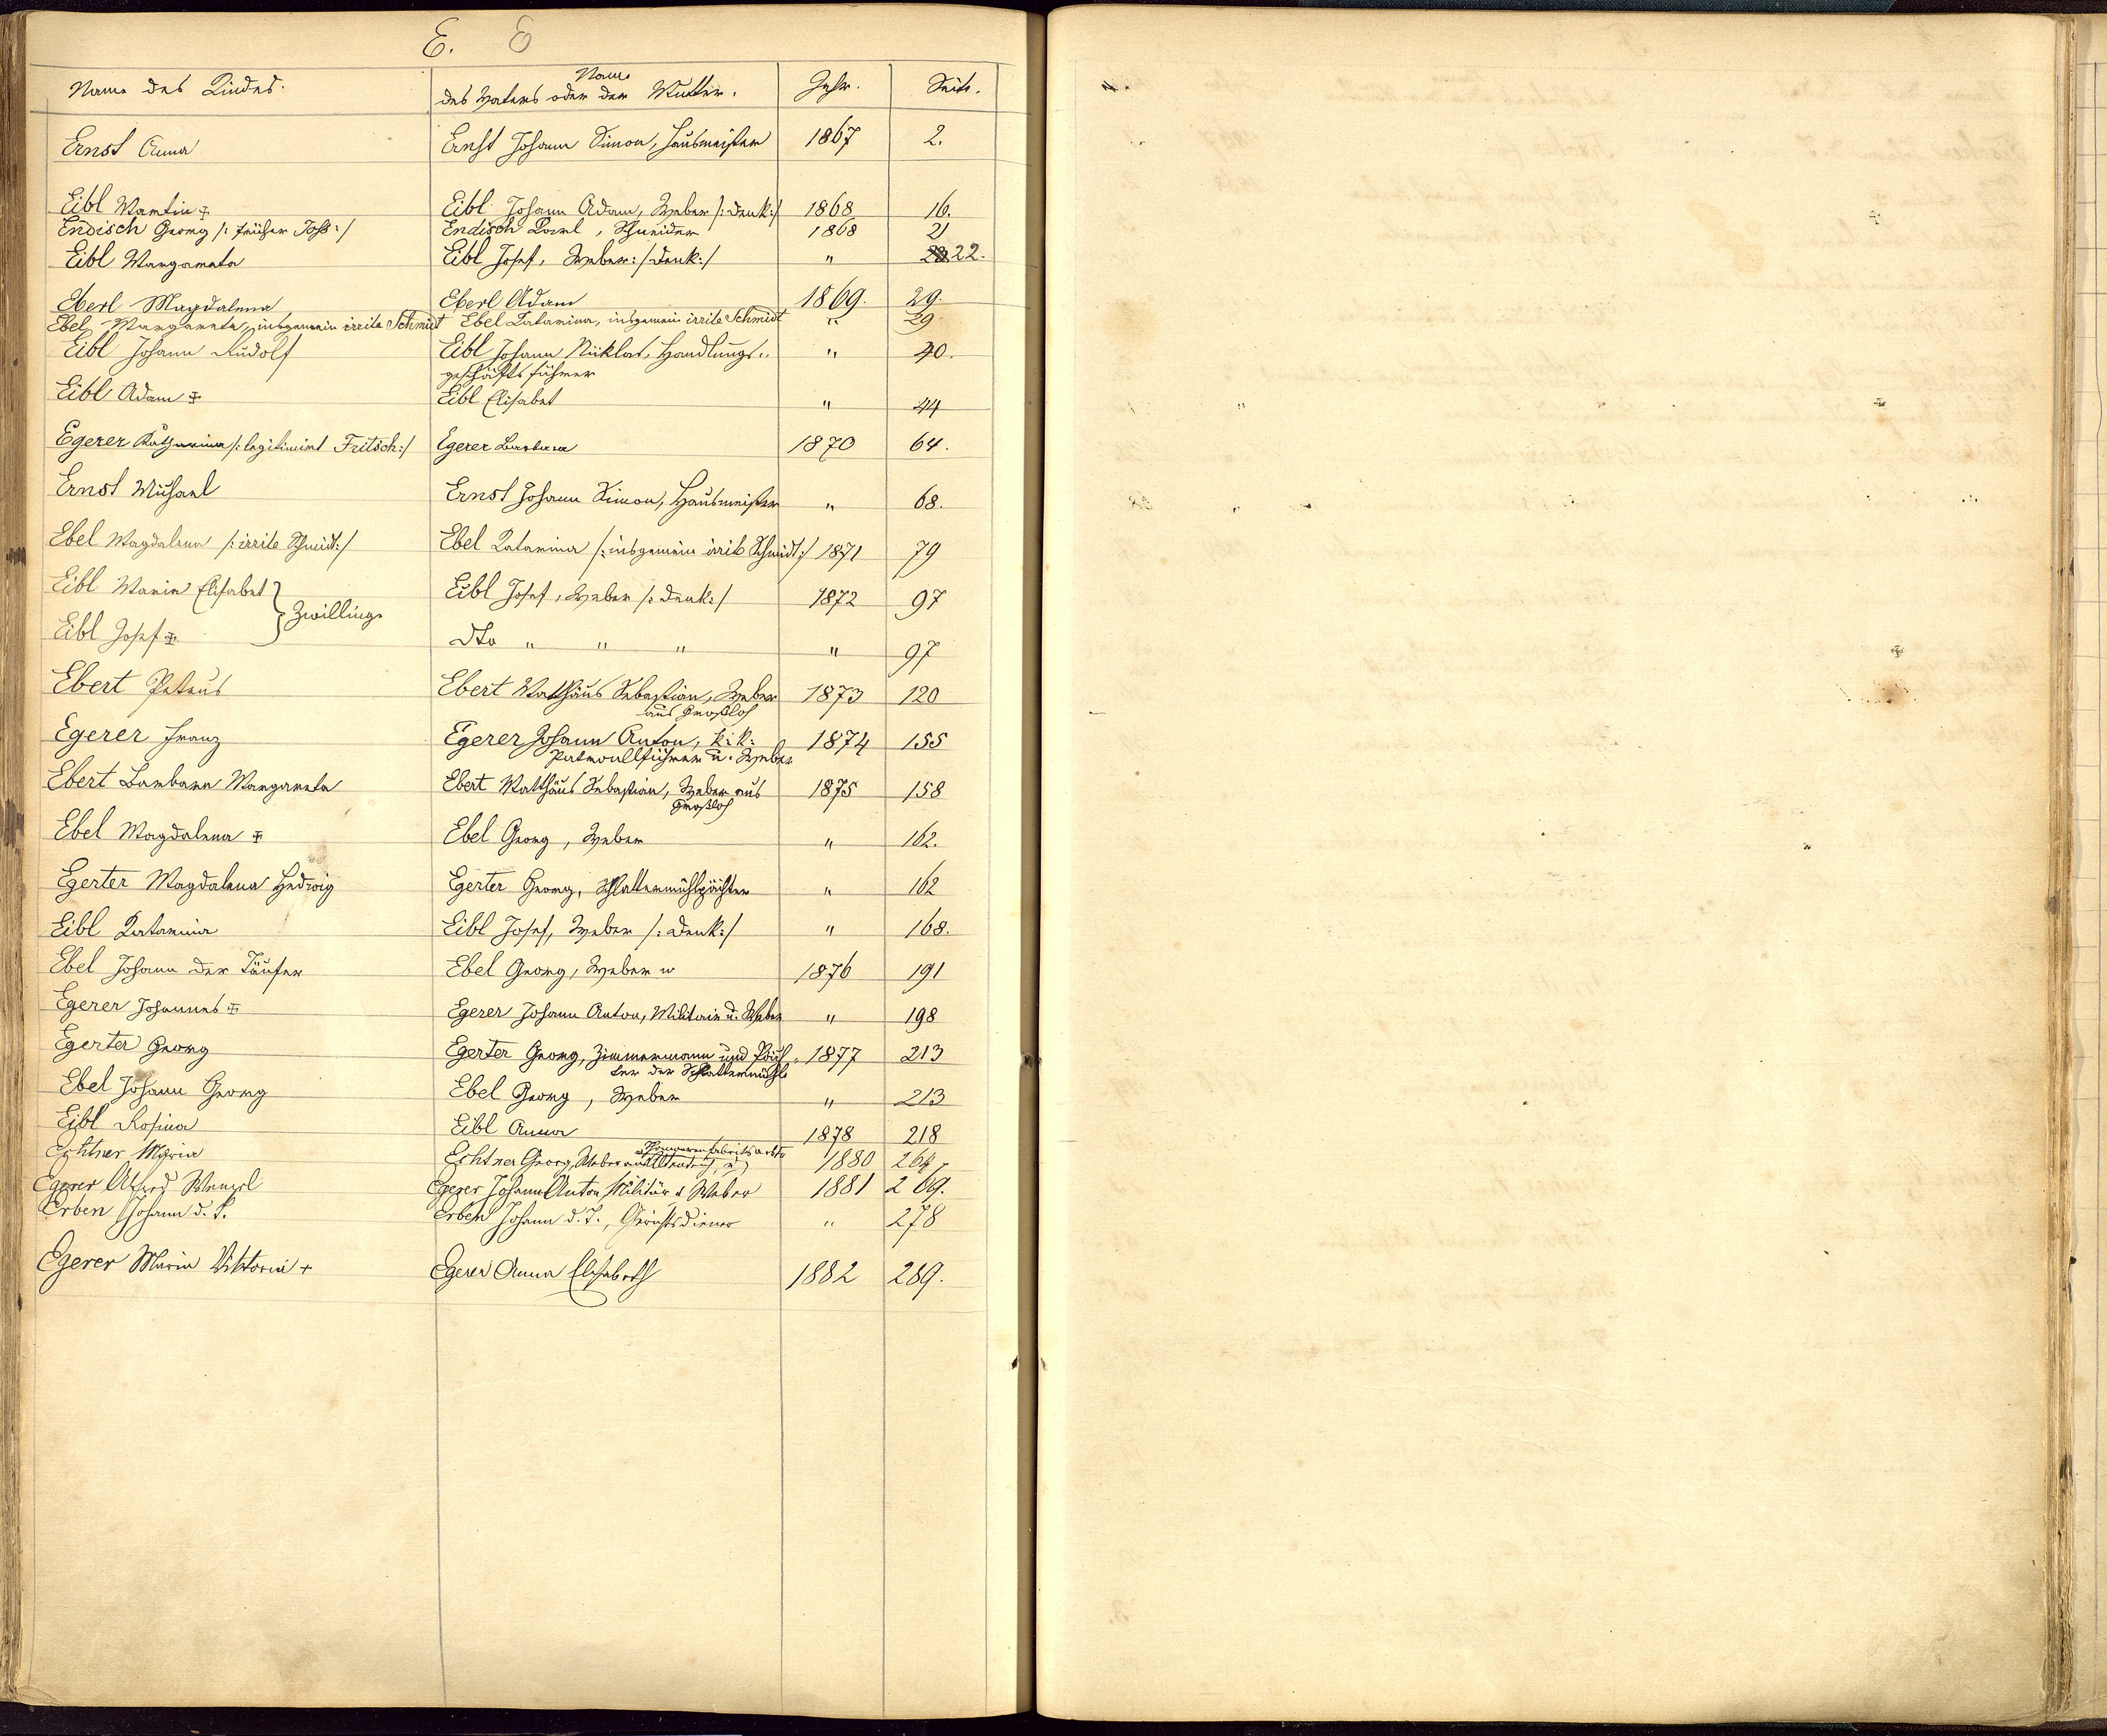 E. E
Name des Kindes. Name des Vaters oder der Mutter. Jahr. Seite.
Ernst Anna Ernst Johann Simon, Hausmeister 1867 2.
Eibl Martin ‡ Eibl Johann Adam, Weber /: Denk :/ 1868 16.
Endisch Georg /: früher Joh: :/ Endisch Karl, Schneider 1868 21
Eibl Margareta Eibl Josef, Weber /: Denk :/ " 22.
Eberl Magdalena Eberl Adam 1869. 29.
Ebel Margareta, insgemein irrite Schmidt Ebel Katarina, insgemein irrite Schmidt " 29
Eibl Johann Rudolf Eibl Johann Niklas, Handlungs- " 40.
geschäftsführer
Eibl Adam ‡ Eibl Elisabet " 44
Egerer Katharina /: legitimirt Fritsch :/ Egerer Barbara 1870 64.
Ernst Michael Ernst Johann Simon, Hausmeister " 68.
Ebel Magdalena /: irrite Schmidt :/ Ebel Katarina /: insgemein irrite Schmidt :/ 1871 79
Eibl Maria Elisabet } Zwillinge Eibl Josef, Weber /: Denk :/ 1872 97
Eibl Josef ‡ dto " " " " 97
Ebert Petrus Ebert Matthäus Sebastian, Weber 1873 120
aus Großloh
Egerer Franz Egerer Johann Anton, k: k: 1874 155
Patroullführer u. Weber
Ebert Barbara Margareta Ebert Matthäus Sebastian, Weber aus 1875 158
Großloh
Ebel Magdalena ‡ Ebel Georg, Weber " 162.
Egerter Magdalena Hedwig Egerter Georg, Schlattermühlpächter " 162
Eibl Katarina Eibl Josef, Weber /: Denk :/ " 168.
Ebel Johann der Täufer Ebel Georg, Weber 1876 191
Egerer Johannes ‡ Egerer Johann Anton, Militair u. Weber " 198
Egerter Georg Egerter Georg, Zimmermann und Päch- 1877 213
ter der Schlattermühle
Ebel Johann Georg Ebel Georg, Weber " 213
Eibl Rosina Eibl Anna 1878 218
Echtner Maria Echtner Georg, Weber 1880 264
Egerer Alfred Wenzel Egerer Johann Anton Militär & Weber 1881 269.
Erben Johann d. T. Erben Johann d. T., Gerichtsdiener " 278
Egerer Maria Viktoria + Egerer Anna Elisabeth 1882 289.